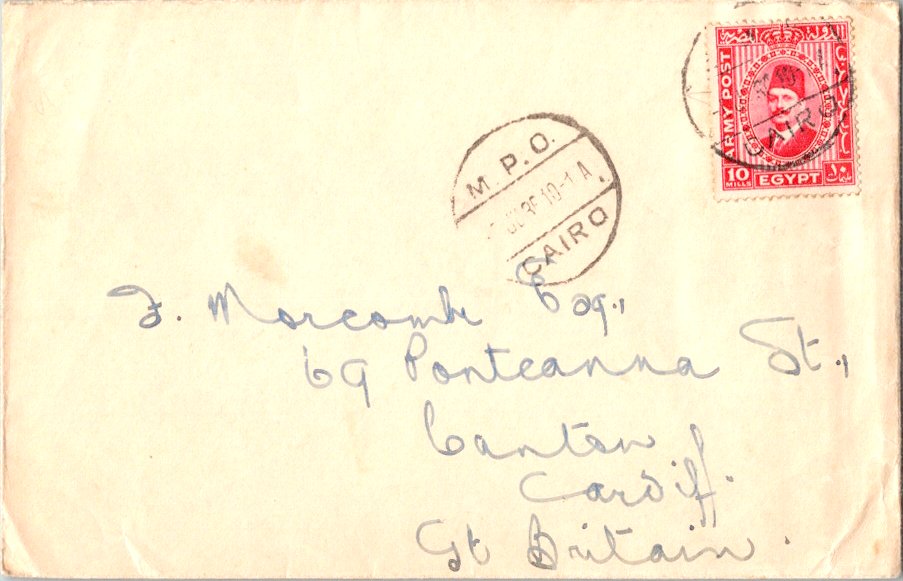 ARMY POST
10
MILLS
EGYPT
CAIRO
M. P. O.
19-1 A
CAIRO
F. Morcombe Esq.,
69 Ponteanna St.,
Canton
Cardiff.
Gt Britain.